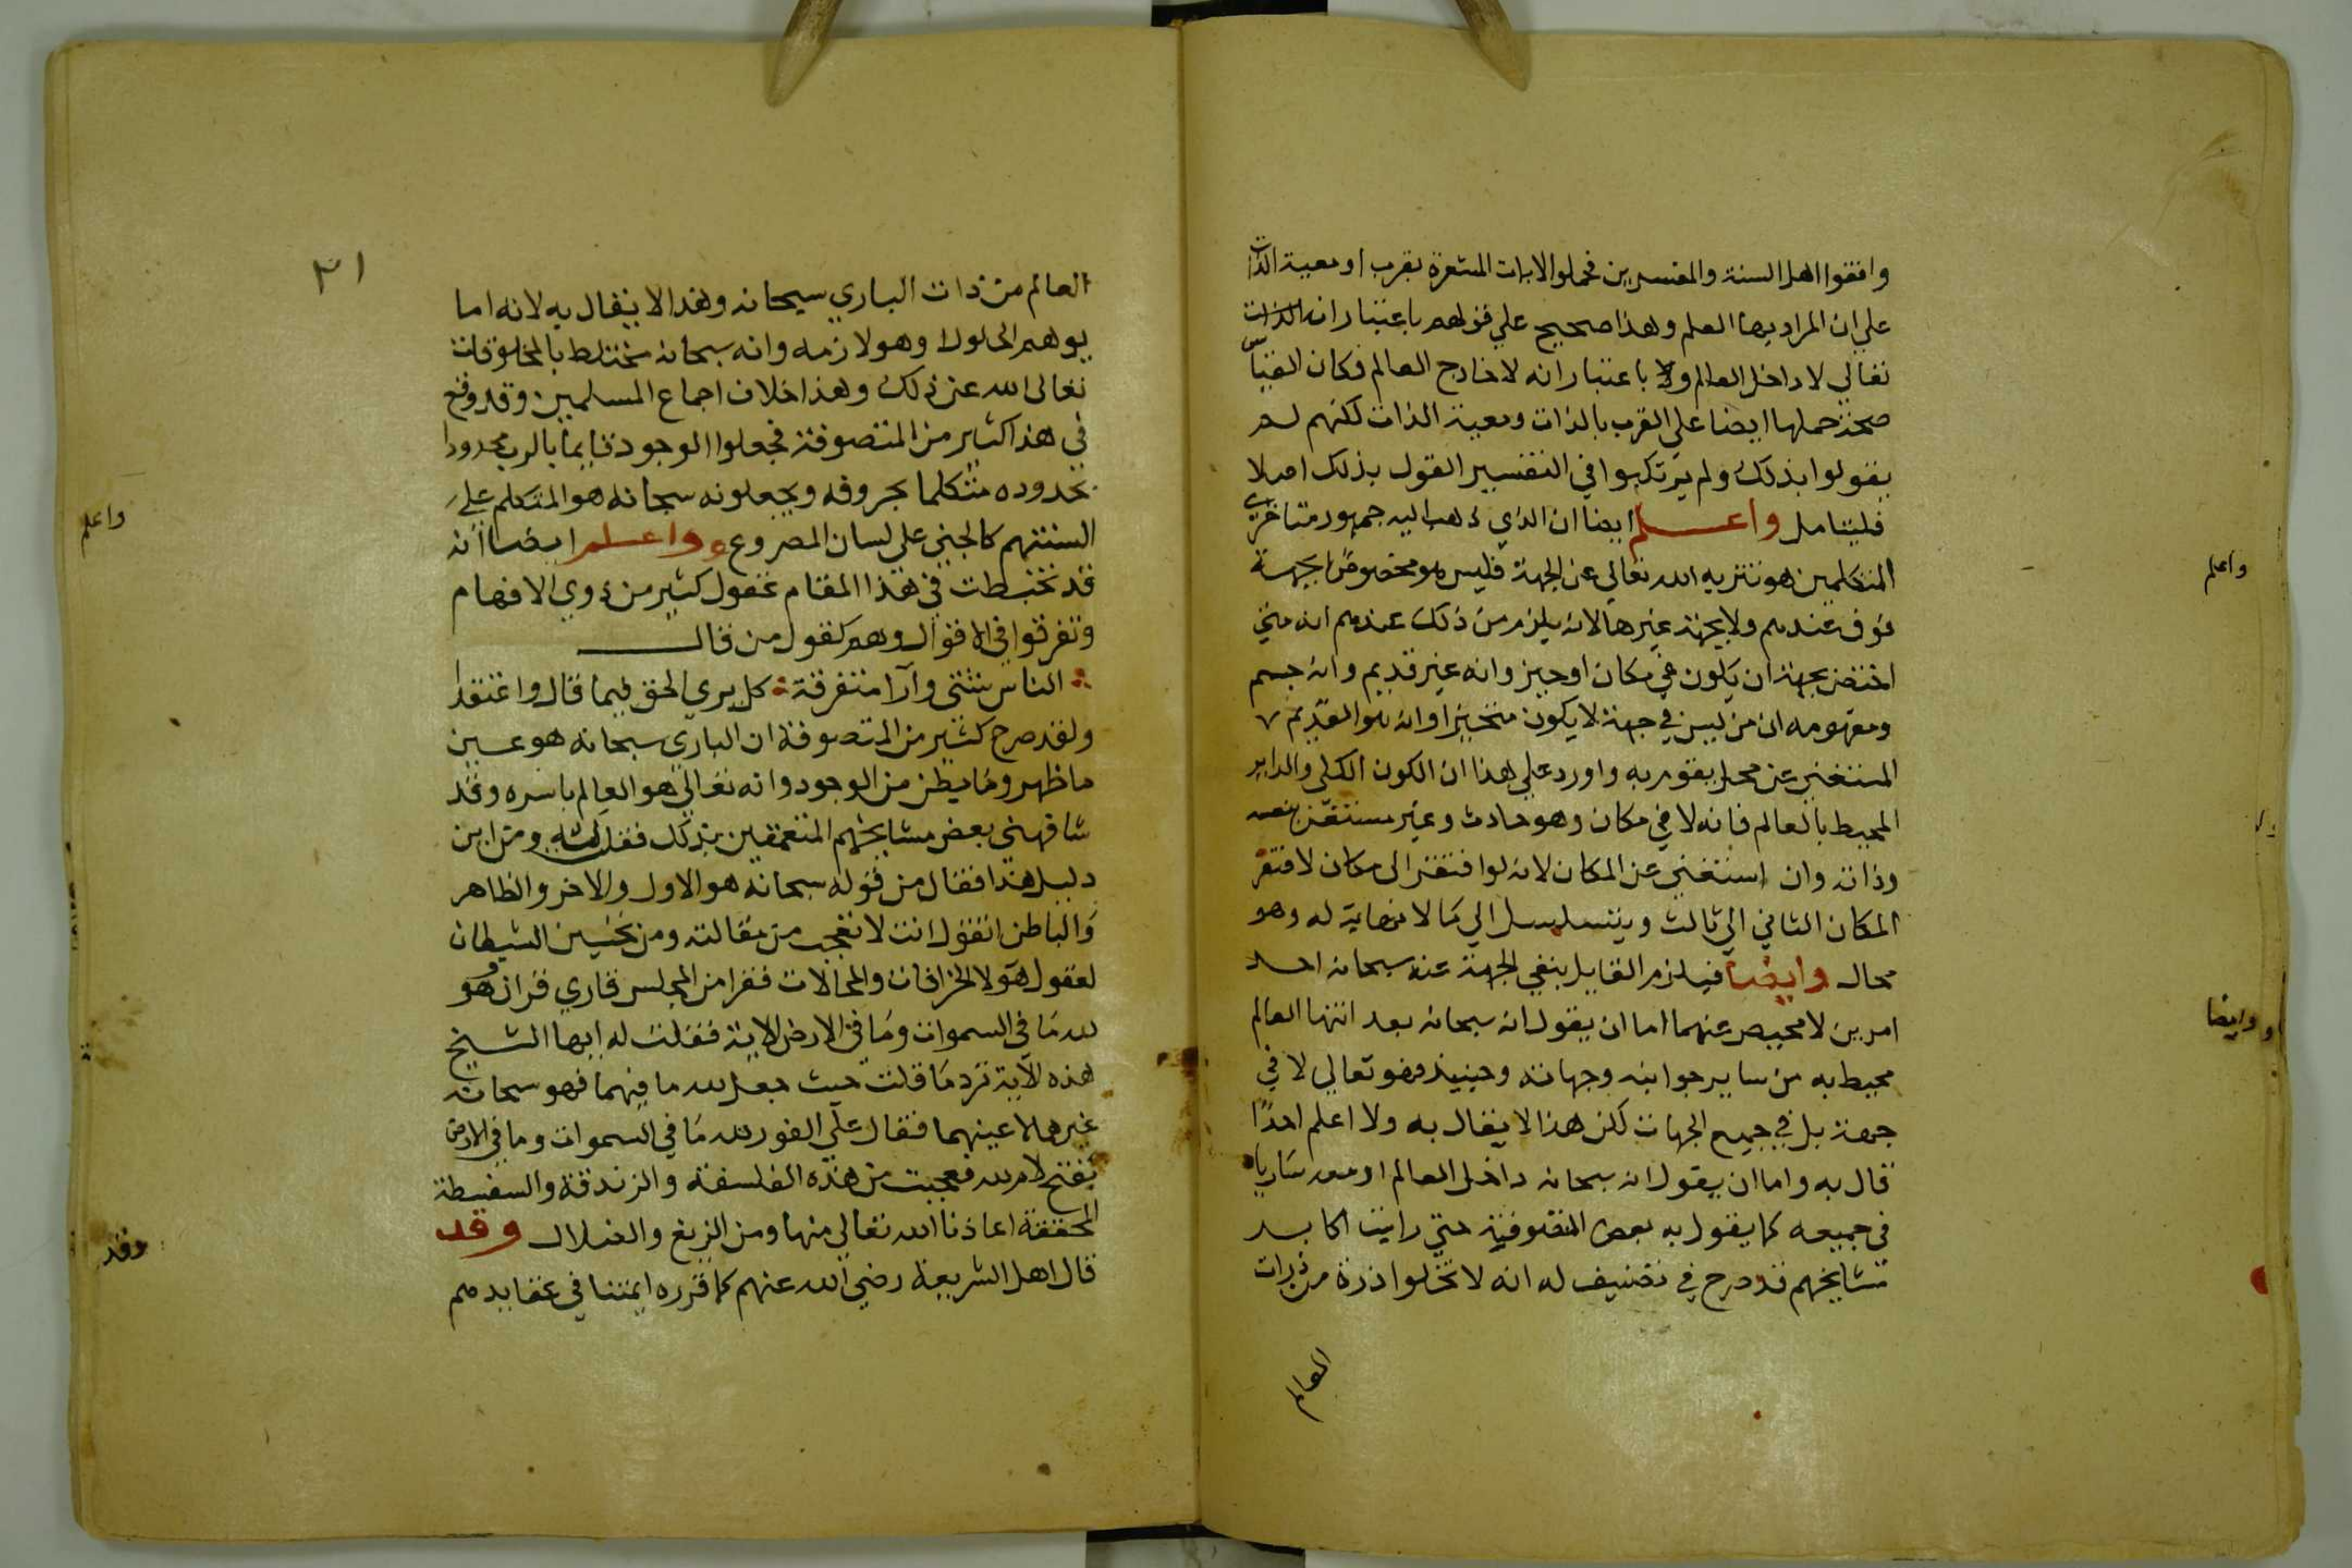 وافقوا اهل السنة والمفسرين فحملوا الايات المشعرة بقرب او معية الذات
علي ان المراد بها العلم وهذا صحيح علي قولهم باعتبار انه
تعالي لا داخل العالم ولا باعتبار انه لا خارج العالم فكان القياس
صحة حملها ايضا علي القرب بالذات ومعية الذات لكنهم لم
يقولوا بذلك ولم يرتكبوا في التفسير القول بذلك اصلا
فليتامل واعلم ايضا ان الذي ذهب اليه جمهور متاخري
المتكلمين هو تنزيه الله تعالي عن الجهة فليس هو مخصوصا بجهة
فوق عندهم ولا بجهة غيرها لانه يلزم من ذلك عندهم انه متي
اختص بجهة ان يكون في مكان او حيز وانه غير قديم وانه جسم
ومفهومه ان من ليس في جهة لا يكون متحيزا وانه هو القديم
المستغني عن محل يقوم به واورد علي هذا ان الكون الكلي والداير
المحيط بالعالم فانه لا في مكان وهو حادث وغير مستغن بنفسه
وذاته وان استغني عن المكان لانه لو افتقر الى مكان لافتقر
المكان الثاني الي ثالث ويتسلسل الي ما لا نهاية له وهو
محال وايضا فيلزم القايل بنفي الجهة عنه سبحانه احد
امرين لا محيص عنهما اما ان يقول انه سبحانه بعد انتها العالم
محيط به من ساير جوانبه وجهاته وحينيذ فهو تعالي لا في
جهة بل في جميع الجهات لكن هذا لا يقال به ولا اعلم احدا
قال به واما ان يقول انه سبحانه داخل العالم او معه ساريا
في جميعه كما يقول به بعض المتصوفية حتي رايت اكابر
مشايخهم قد صرح في تصنيف له انه لا تخلوا ذرة من ذرات
العالم
واعلم
وايضا
٣١
العالم من ذات الباري سبحانه وهذا لا يقال به لانه اما
يوهم الحلول او هو لازمه وانه سبحانه مختلط بالمخلوقات
تعالى الله عن ذلك وهذا خلاف اجماع المسلمين وقد وقع
في هذا كثير من المتصوفة فجعلوا الوجود قايما بالرب محدودا
بحدوده متكلما بحروفه ويجعلونه سبحانه هو المتكلم علي
السنتهم كالجني علي لسان المصروع واعلم ايضا انه
قد تخبطت في هذا المقام عقول كثير من ذوي الافهام
وتفرقوا في الاقوال وهم كقول من قال
الناس شتي وآرا متفرقة كل يري الحق فيما قال واعتقدا
ولقد صرح كثير من المتصوفة ان الباري سبحانه هو عين
ما ظهر وما بطن من الوجود وانه تعالي هو العالم باسره وقد
شافهني بعض مشايخهم المتعمقين بذلك فقلت له ومن اين
دليل هذا فقال من قوله سبحانه هو الاول والاخر والظاهر
والباطن اتقول انت لا فعجبت من مقالته ومن تحسين الشيطان
لعقول هولا الخرافات والمحالات فقرا من المجلس قاري قران هو
لله ما في السموات وما في الارض الاية فقلت له ايها الشيخ
هذه الآية ترد ما قلت حيث جعل لله ما فيهما فهو سبحانه
غيرهما لا عينهما فقال علي الفور لله ما في السموات وما في الارض
بفتح لام لله فعجبت من هذه الفلسفة والزندقة والسفسطة
المحققة اعاذنا الله تعالي منها ومن الزيغ والضلال وقد
قال اهل الشريعة رضي الله عنهم كما قرره ايمتنا في عقايدهم
واعلم
وقد